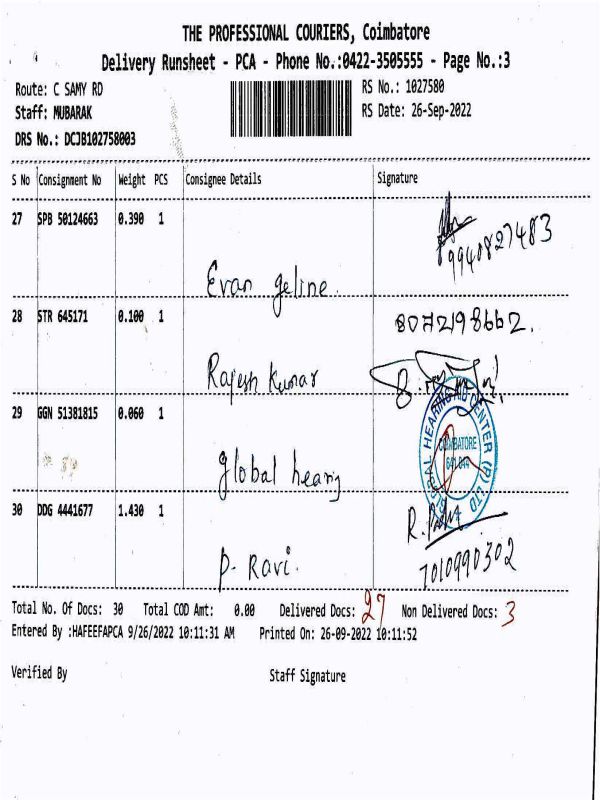 THE PROFESSIONAL COURIERS, Coimbatore
Delivery Runsheet - PCA - Phone No.:0422-3505555 - Page No.:3
Route: C SAMY RD
RS No.: 1027580
Staff: MUBARAK
RS Date: 26-Sep-2022
DRS No.: DCJB102758003
S No Consignment No Weight PCS Consignee Details Signature
27 SPB 50124663 0.390 1
9940827483
Evan geline.
28 STR 645171 0.100 1
8072198662.
Rajesh Kumar
29 GGN 51381815 0.060 1
GLOBAL HEARING AID CENTER (P) LTD
COIMBATORE
global hearing
30 DDG 4441677 1.430 1
P. Ravi.
7010990302
Total No. Of Docs: 30 Total COD Amt: 0.00 Delivered Docs: 27 Non Delivered Docs: 3
Entered By :HAFEEFAPCA 9/26/2022 10:11:31 AM Printed On: 26-09-2022 10:11:52
Verified By Staff Signature